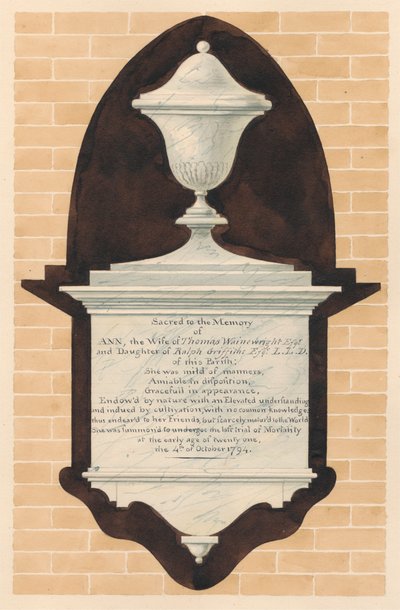 Sacred to the Memory
of
ANN, the Wife of Thomas Wainewright Esqr.
and Daughter of Ralph Griffiths Esqr. L.L.D.
of this Parish;
She was mild of manners,
Amiable in disposition,
Gracefull in appearance,
Endow'd by nature with an Elevated understanding
and indued by cultivation, with no common knowledge;
thus endear'd to her Friends, but scarcely matur'd to the World
She was Summon'd to undergoe the last trial of Mortality
at the early age of twenty one,
the 4th of October 1794.